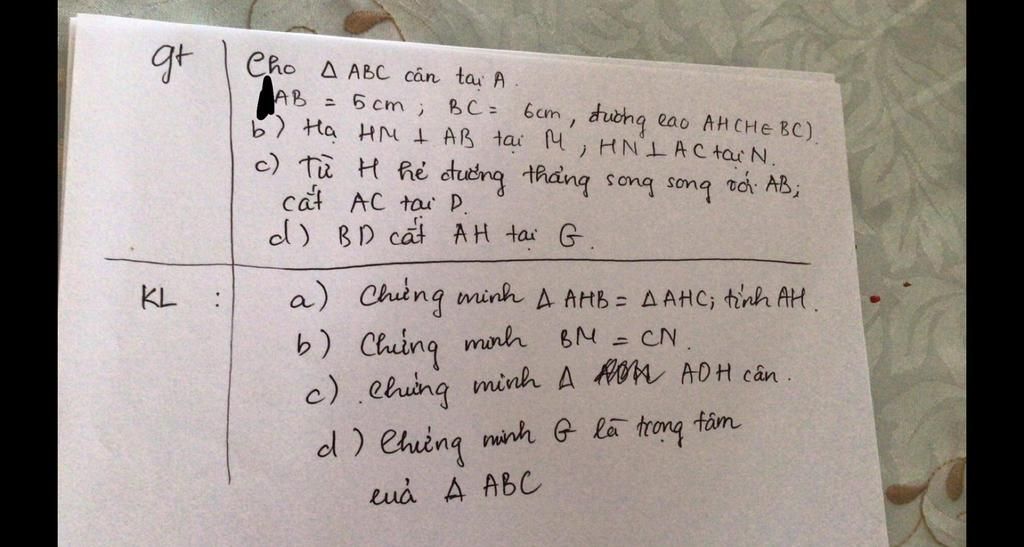 gt
Cho Δ ABC cân tại A.
AB = 5cm ; BC = 6cm, đường cao AH (H ∈ BC).
b) Hạ HM ⊥ AB tại M, HN ⊥ AC tại N.
c) Từ H kẻ đường thẳng song song với AB;
cắt AC tại D.
d) BD cắt AH tại G.
KL :
a) Chứng minh Δ AHB = Δ AHC; tính AH.
b) Chứng minh BM = CN.
c) Chứng minh Δ ADH cân.
d) Chứng minh G là trọng tâm
của Δ ABC